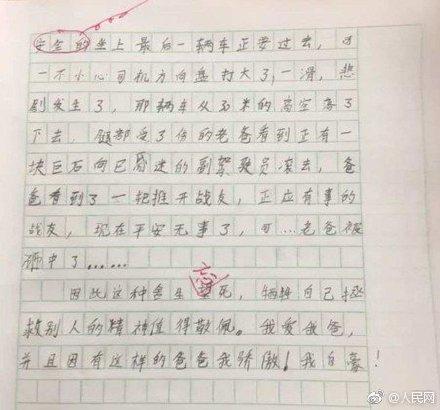 安全的坐上最后一辆车正要过去，可
一不小心司机方向盘打大了，一滑，悲
剧发生了，那辆车从30米的高空落了
下去，腿部受了伤的老爸看到正有一
块巨石向已昏迷的副驾驶员滚去，爸
爸看到了一把推开战友，正应有事的
战友，现在平安无事了，可…老爸被
砸中了……
忘
因此这种舍生 死，牺牲自己拯
救别人的精神值得敬佩。我爱我爸，
并且因有这样的爸爸我骄傲！我自豪！
@人民网